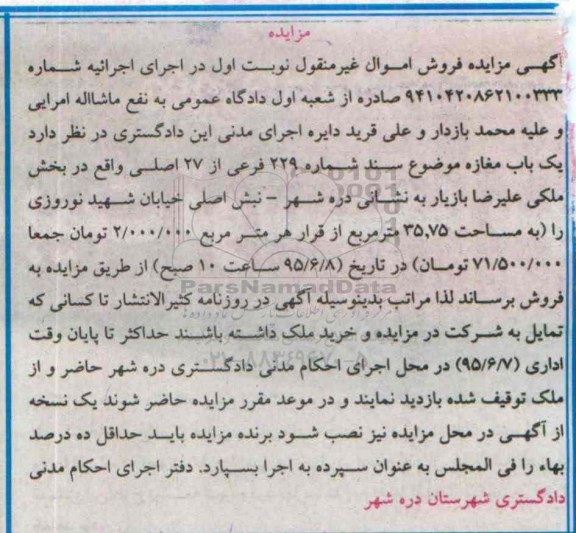 مزایده
آگهـی مزایده فروش امـوال غیرمنقول نوبـت اول در اجرای اجرائیه شـماره
۹۴۱۰۴۲۰۸۶۲۱۰۰۳۳۳ صادره از شعبه اول دادگاه عمومی به نفع ماشااله امرایی
و علیه محمد بازدار و علی قرید دایره اجرای مدنی این دادگستری در نظر دارد
یک باب مغازه موضوع سـند شـماره ۲۲۹ فرعی از ۲۷ اصلـی واقع در بخش
ملکی علیرضا بازیار به نشـانی دره شـهر – نبش اصلی خیابان شـهید نوروزی
را (به مسـاحت ۳۵,۷۵ مترمربع از قرار هر متـر مربع ۲/۰۰۰/۰۰۰ تومان جمعا
۷۱/۵۰۰/۰۰۰ تومـان) در تاریخ (۹۵/۶/۸ سـاعت ۱۰ صبح) از طریق مزایده به
ParsNamadData
فروش برسـاند لذا مراتب بدینوسیله آگهی در روزنامه کثیرالانتشار تا کسانی که
تمایل به شـرکت در مزایده و خرید ملک داشـته باشـند حداکثر تا پایان وقت
اداری (۹۵/۶/۷) در محل اجرای احکام مدنی دادگسـتری دره شهر حاضر و از
۰۲۱-۸۸۳۴۹۶۷۰-۵
ملک توقیف شده بازدید نمایند و در موعد مقرر مزایده حاضر شوند یک نسخه
از آگهـی در محل مزایده نیز نصب شـود برنده مزایده بایـد حداقل ده درصد
بهاء را فی المجلس به عنوان سـپرده به اجرا بسـپارد. دفتر اجرای احکام مدنی
دادگستری شهرستان دره شهر